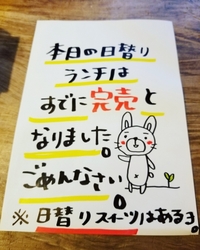 本日の日替り
ランチは
すでに完売と
なりました。
ごめんなさい。
※日替りスイーツはあるヨ